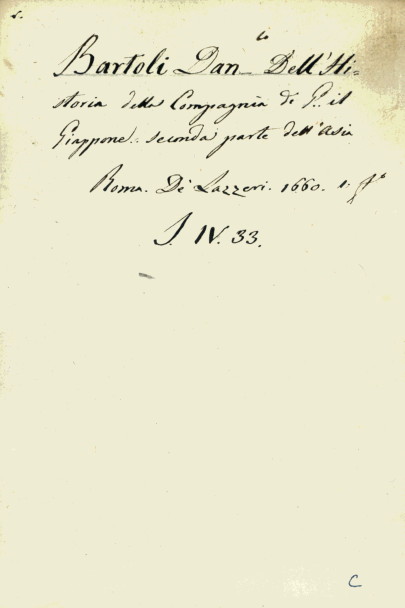 Bartoli Dan.lo Dell'Hi=
storia della Compagnia di G. il
Giappone. seconda parte dell'Asia
Roma. De' Lazzeri. 1660. 1. fo
J. IV. 33.
C